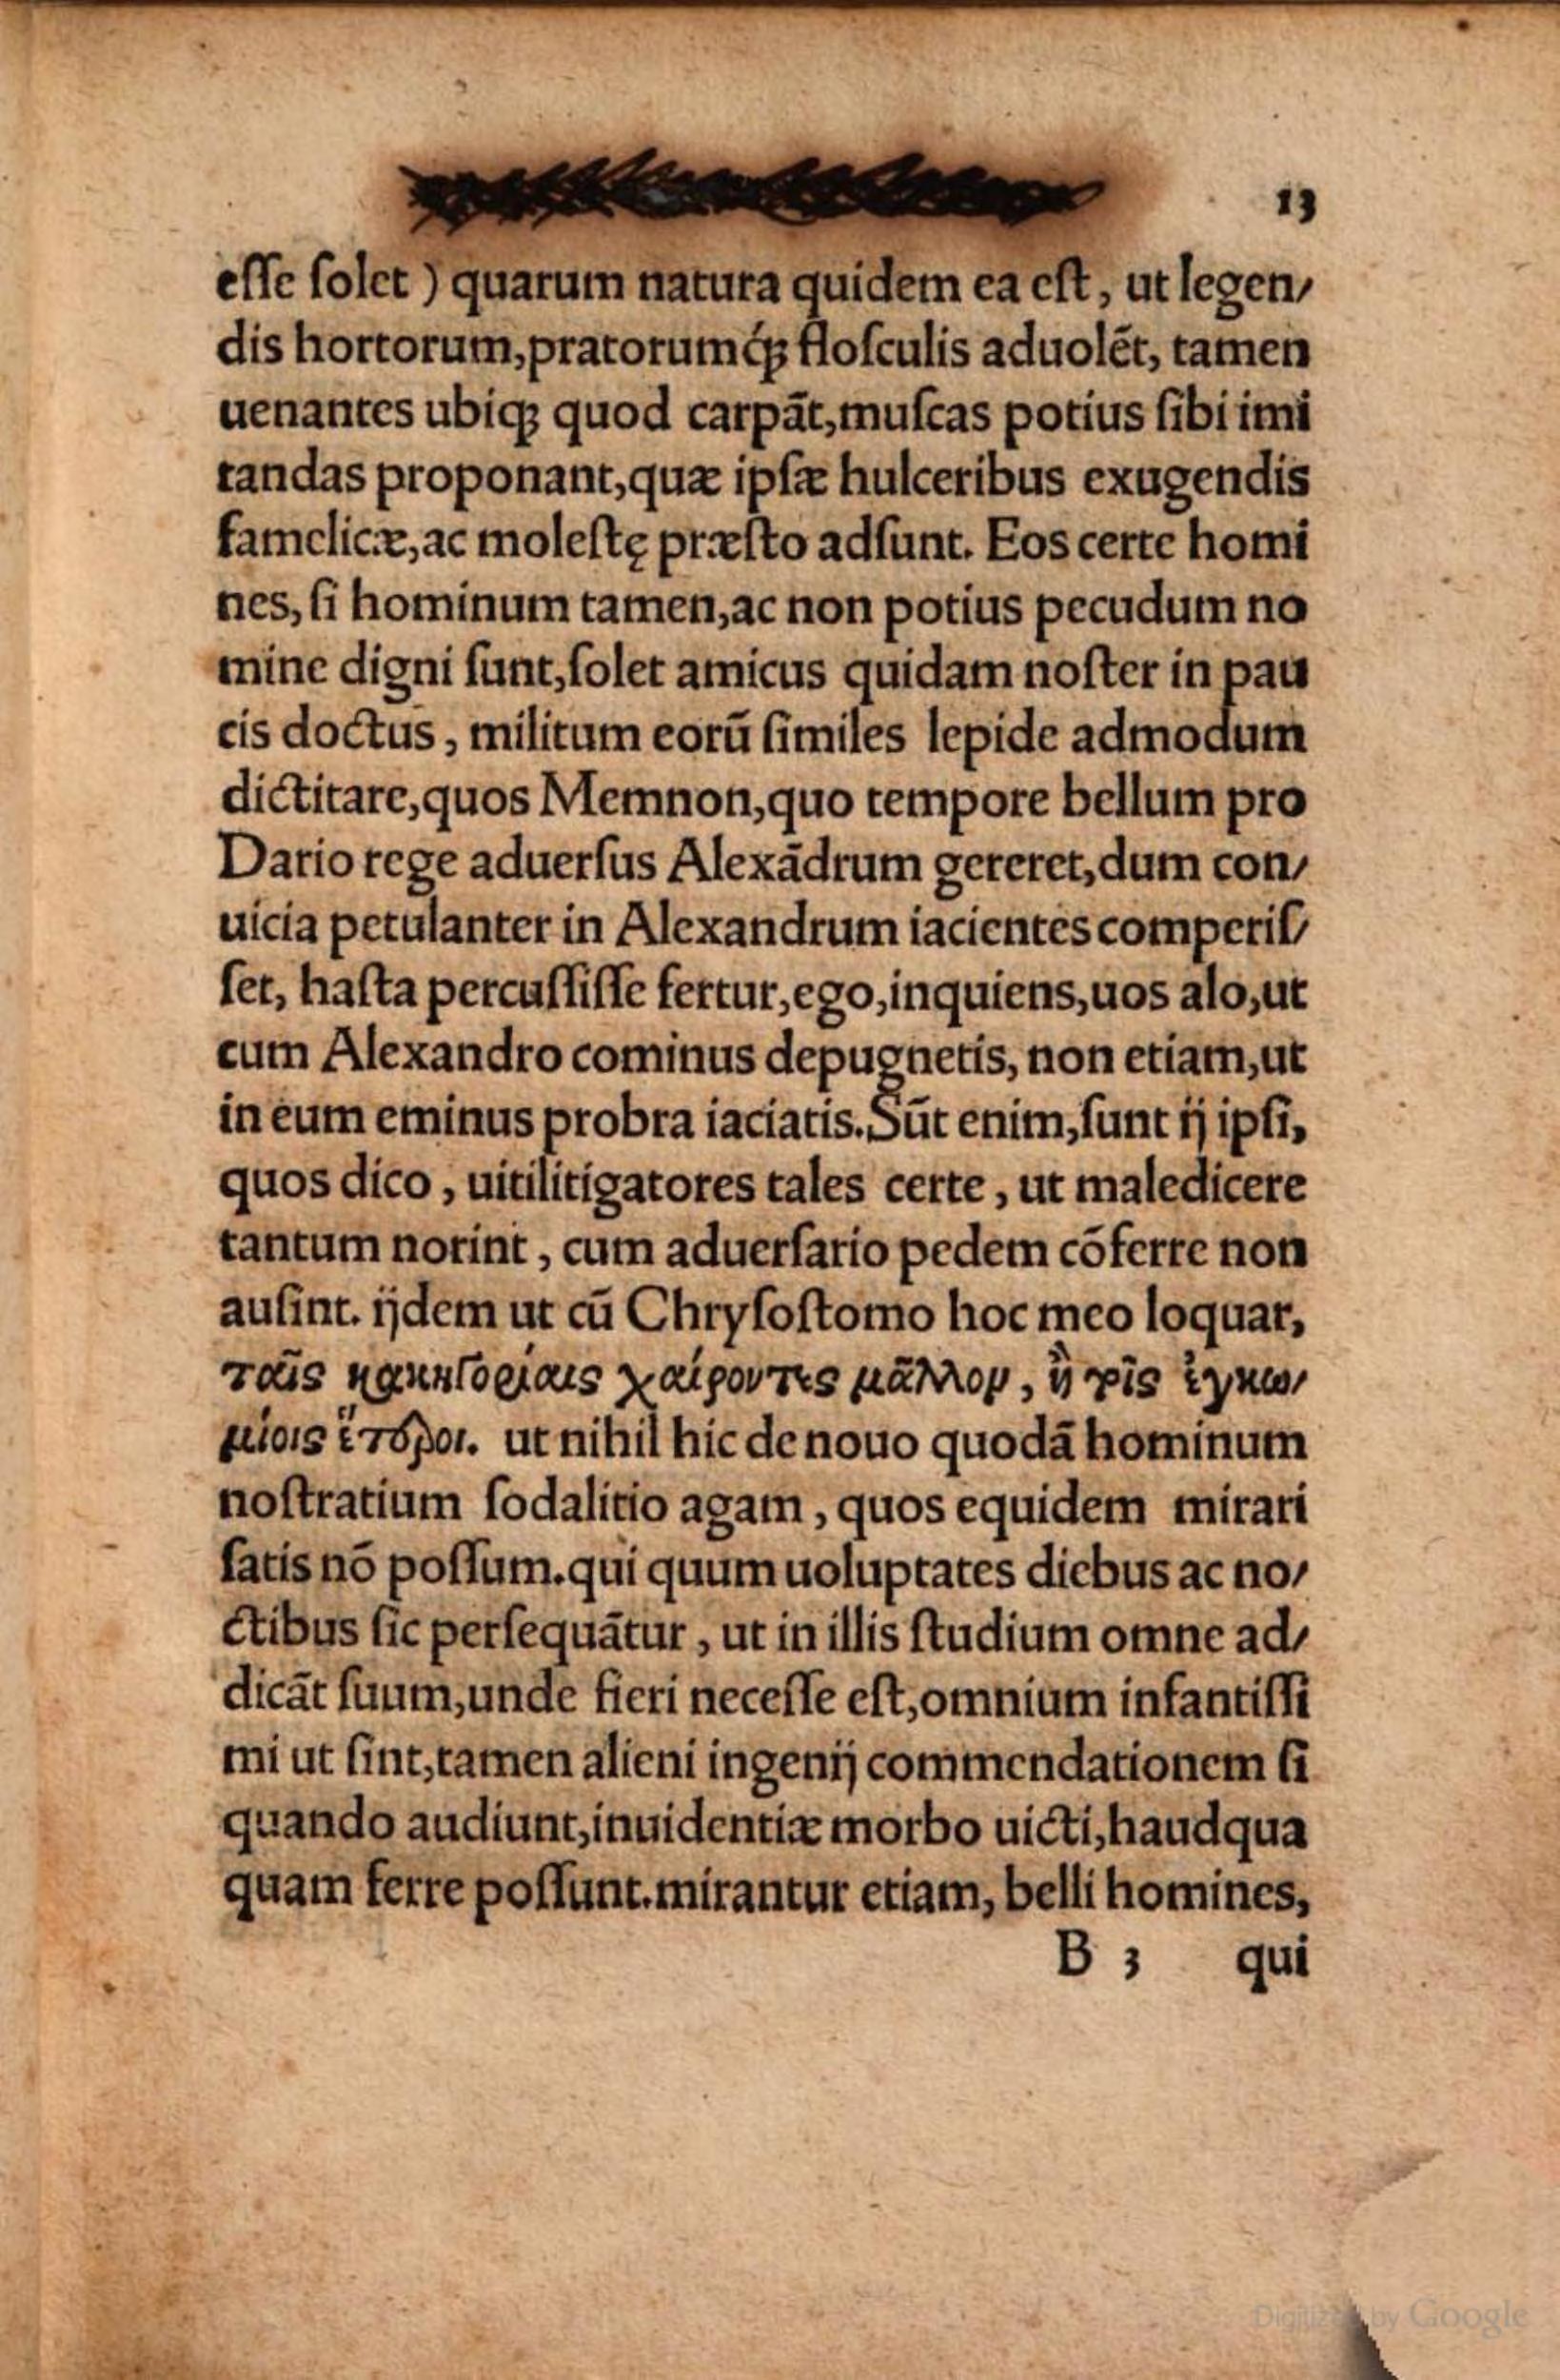 13
eſſe ſolet ) quarum natura quidem ea eſt, ut legen/
dis hortorum,pratorumq́ꝫ floſculis aduolēt, tamen
uenantes ubiqꝫ quod carpāt,muſcas potius ſibi imi
tandas proponant,quæ ipſæ hulceribus exugendis
famelicæ,ac moleſtę præſto adſunt. Eos certe homi
nes, ſi hominum tamen,ac non potius pecudum no
mine digni ſunt,ſolet amicus quidam noſter in pau
cis doctus, militum eorū ſimiles lepide admodum
dictitare,quos Memnon,quo tempore bellum pro
Dario rege aduerſus Alexādrum gereret,dum con/
uicia petulanter in Alexandrum iacientes comperiſ/
ſet, haſta percuſſiſſe fertur,ego,inquiens,uos alo,ut
cum Alexandro cominus depugnetis, non etiam,ut
in eum eminus probra iaciatis.Sūt enim,ſunt ij ipſi,
quos dico, uitilitigatores tales certe, ut maledicere
tantum norint, cum aduerſario pedem cōferre non
auſint. ijdem ut cū Chryſoſtomo hoc meo loquar,
ταῖς κακηγορίαις χαίροντες μᾶλλον, ἢ τοῖς ἐγκω/
μίοις ἕτεροι. ut nihil hic de nouo quodā hominum
noſtratium ſodalitio agam, quos equidem mirari
ſatis nō poſſum.qui quum uoluptates diebus ac no/
ctibus ſic perſequātur, ut in illis ſtudium omne ad/
dicāt ſuum,unde fieri neceſſe eſt,omnium infantiſſi
mi ut ſint,tamen alieni ingenij commendationem ſi
quando audiunt,inuidentiæ morbo uicti,haudqua
quam ferre poſſunt.mirantur etiam, belli homines,
B 3 qui
Digitized by Google